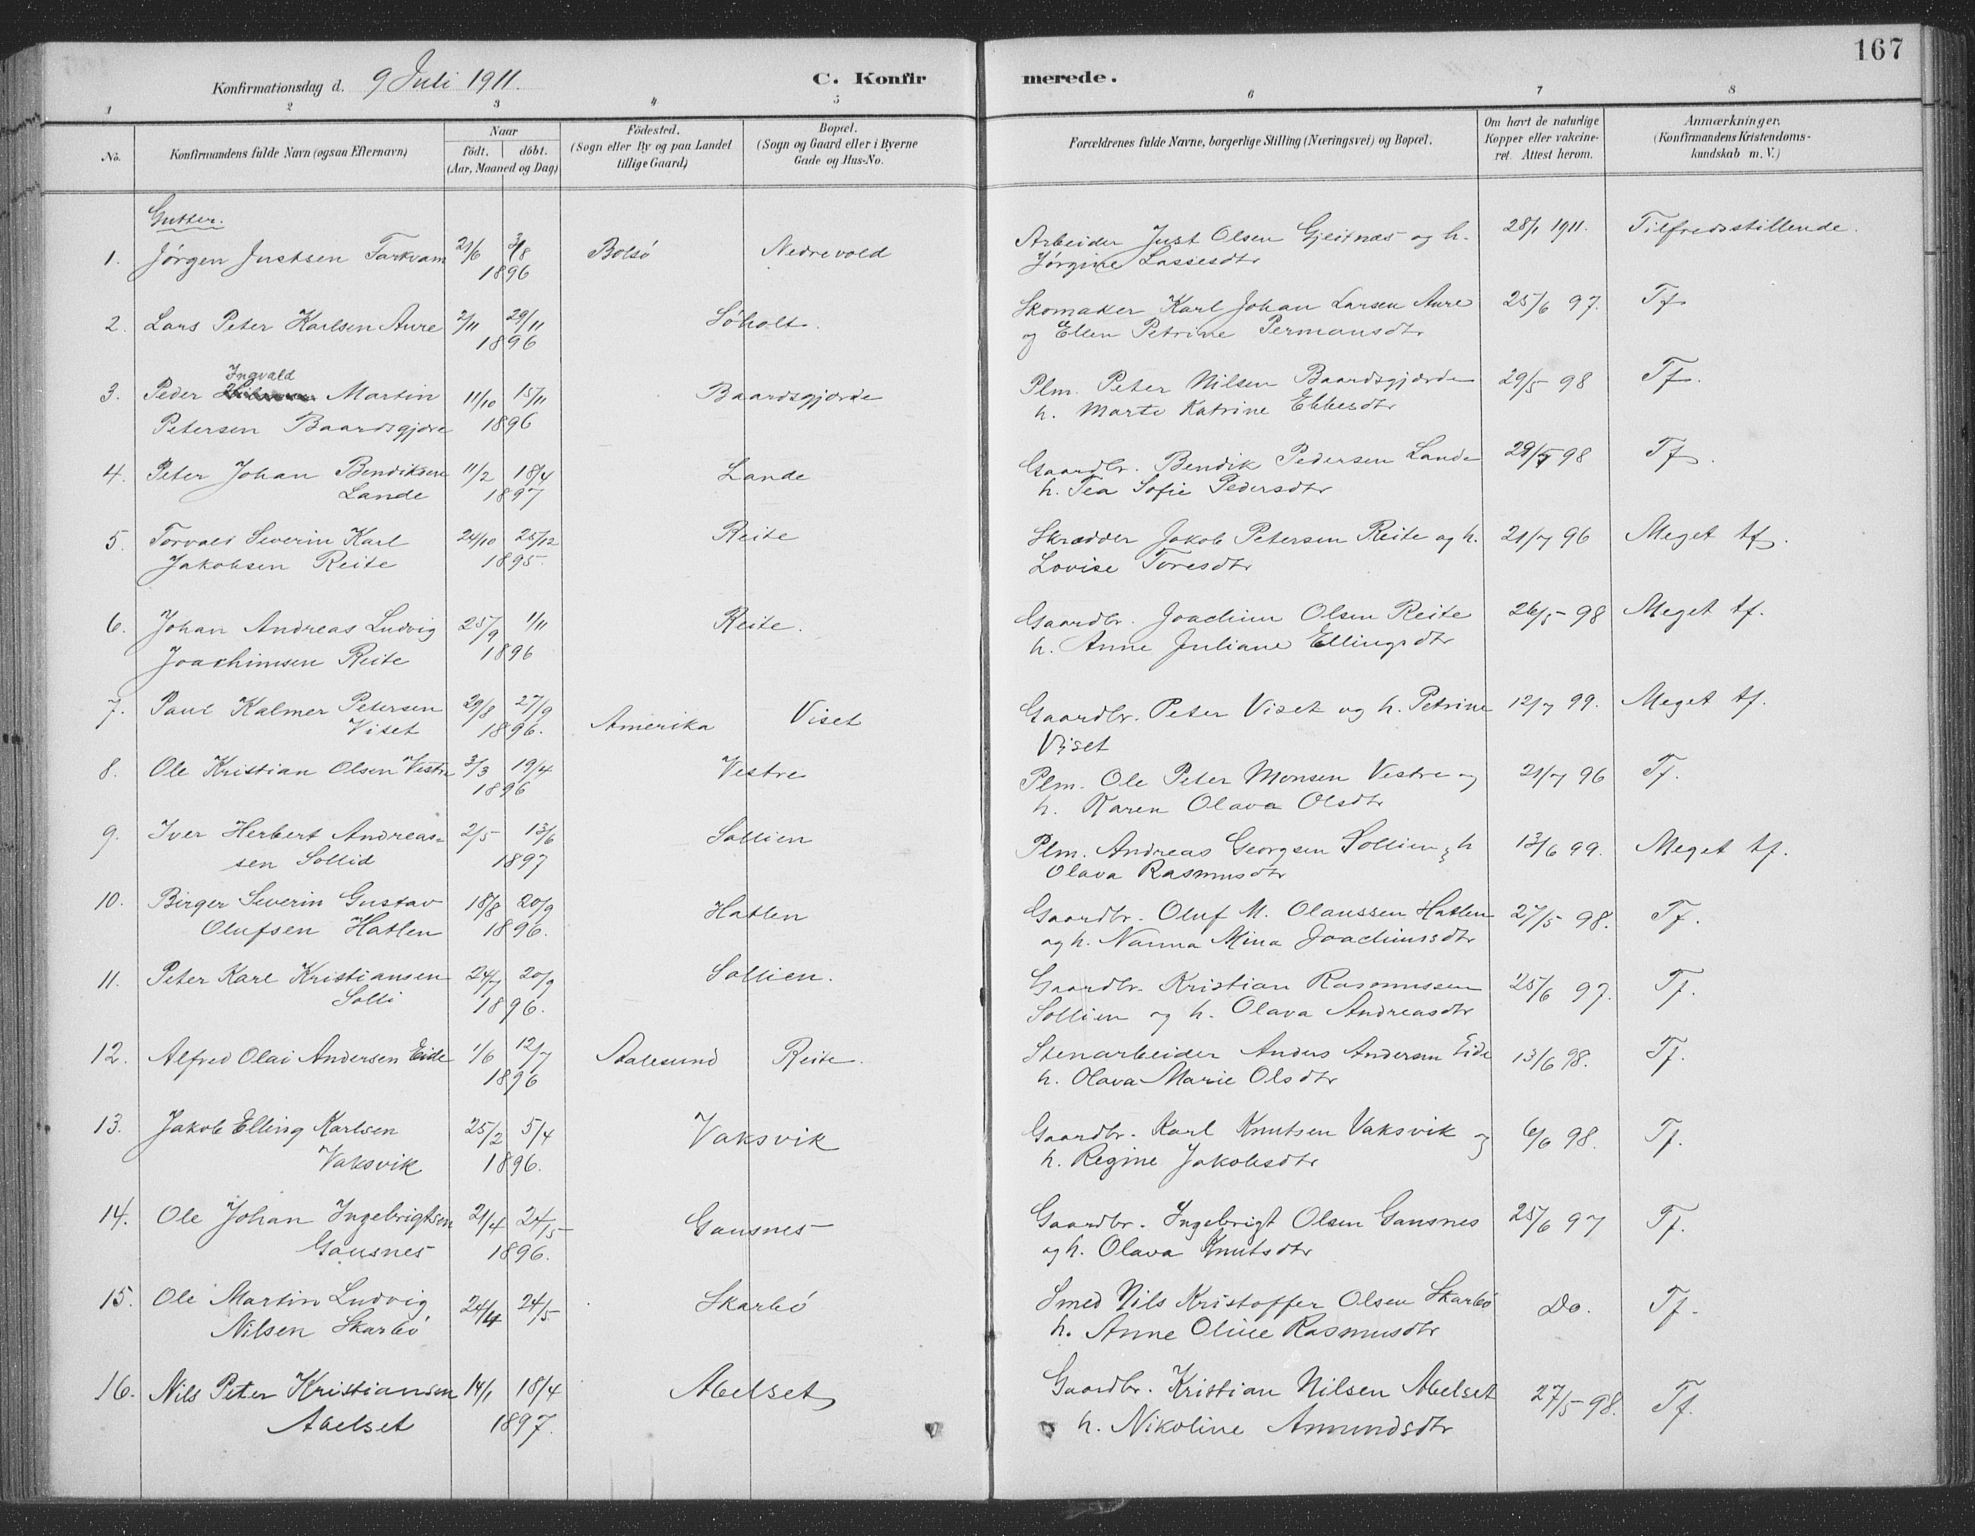 167
Konfirmationsdag d. 9 Juli 1911. C. Konfirmerede.
1 2 3 4 5 6 7 8
No. Konfirmandens fulde Navn (ogsaa Efternavn) Naar født. døbt. (Aar, Maaned og Dag) Fødested. (Sogn eller By og paa Landet tillige Gaard) Bopæl. (Sogn og Gaard eller i Byerne Gade og Hus-No. Forældrenes fulde Navne, borgerlige Stilling (Næringsvei) og Bopæl. Om havt de naturlige Kopper eller vakcineret. Attest herom. Anmærkninger. (Konfirmandens Kristendomskundskab m. V.)
Gutter.
1. Jørgen Justsen Tarkvam 21/6 3/8 Bolsø Nedrevold Arbeider Just Olsen Gjeitnæs og h. 28/1 1911. Tilfredsstillende.
1896 Jørgine Lassesdtr
2. Lars Peter Karlsen Aure 2/11 29/11 Søholt. Skomaker Karl Johan Larsen Aure 25/6 97. Tf
1896 og Ellen Petrine Permansdtr
Ingvald
3. Peder Martin 11/10 15/11 Baardsgjærde Plm. Peter Nilsen Baardsgjærde 29/5 98 Tf.
Petersen Baardsgjære 1896 h. Marte Katrine Ebbesdtr
4. Peter Johan Bendiksen 11/2 18/4 Lande Gaardbr. Bendik Pedersen Lande 29/5 98 Tf.
Lande 1897 h. Tea Sofie Pedersdtr
5. Torvald Severin Karl 24/10 25/12 Reite Skrædder Jakob Petersen Reite og h. 21/7 96 Meget tf.
Jakobsen Reite 1895. Lovise Toresdtr
6. Johan Andreas Ludvig 25/9 1/11 Reite. Gaardbr. Joachim Olsen Reite 26/5 98 Meget tf.
Joachimsen Reite 1896 h. Anne Juliane Ellingsdtr
7. Paul Kalmer Petersen 29/8 27/9 Amerika Viset Gaardbr. Peter Viset og h. Petrine 12/7 99. Meget tf.
Viset 1896. Viset
8. Ole Kristian Olsen Vestre 3/3 19/4 Vestre Plm. Ole Peter Monsen Vestre og 21/7 96 Tf.
1896 h. Karen Olava Olsdtr
9. Iver Herbert Andreas- 2/5 13/6 Sollien Plm. Andreas Georgsen Sollien & h 13/6 99. Meget tf.
sen Sollid 1897 Olava Rasmusdtr
10. Birger Severin Gustav 18/8 20/9 Hatlen Gaardbr. Oluf M. Olaussen Hatlen 27/5 98. Tf.
Olufsen Hatlen 1896. og h. Nanna Mina Joachimsdtr
11. Peter Karl Kristiansen 24/7 20/9 Sollien. Gaardbr. Kristian Rasmussen 25/6 97. Tf.
Solli 1896. Sollien og h. Olava Andreasdtr
12. Alfred Olai Andersen Eide 1/6 12/7 Aalesund Reite. Stenarbeider Anders Andersen Eide 13/6 98. Tf.
1896 h. Olava Marie Olsdtr
13. Jakob Elling Karlsen 25/2 5/4 Vaksvik Gaardbr. Karl Knutsen Vaksvik og 6/6 98. Tf.
Vaksvik 1896. h. Regine Jakobsdtr
14. Ole Johan Ingebrigtsen 21/4 24/5 Gausnes Gaardbr. Ingebrigt Olsen Gausnes 25/6 97 Tf.
Gausnes 1896. og h. Olava Knutsdtr
15. Ole Martin Ludvig 24/4 24/5 Skarbø Smed Nils Kristoffer Olsen Skarbø Do. Tf.
Nilsen Skarbø h. Anne Oline Rasmusdtr
16. Nils Peter Kristiansen 14/1 18/4 Abelset Gaardbr. Kristian Nilsen Abelset 27/5 98. Tf.
Abelset 1897. h. Nikoline Amundsdtr